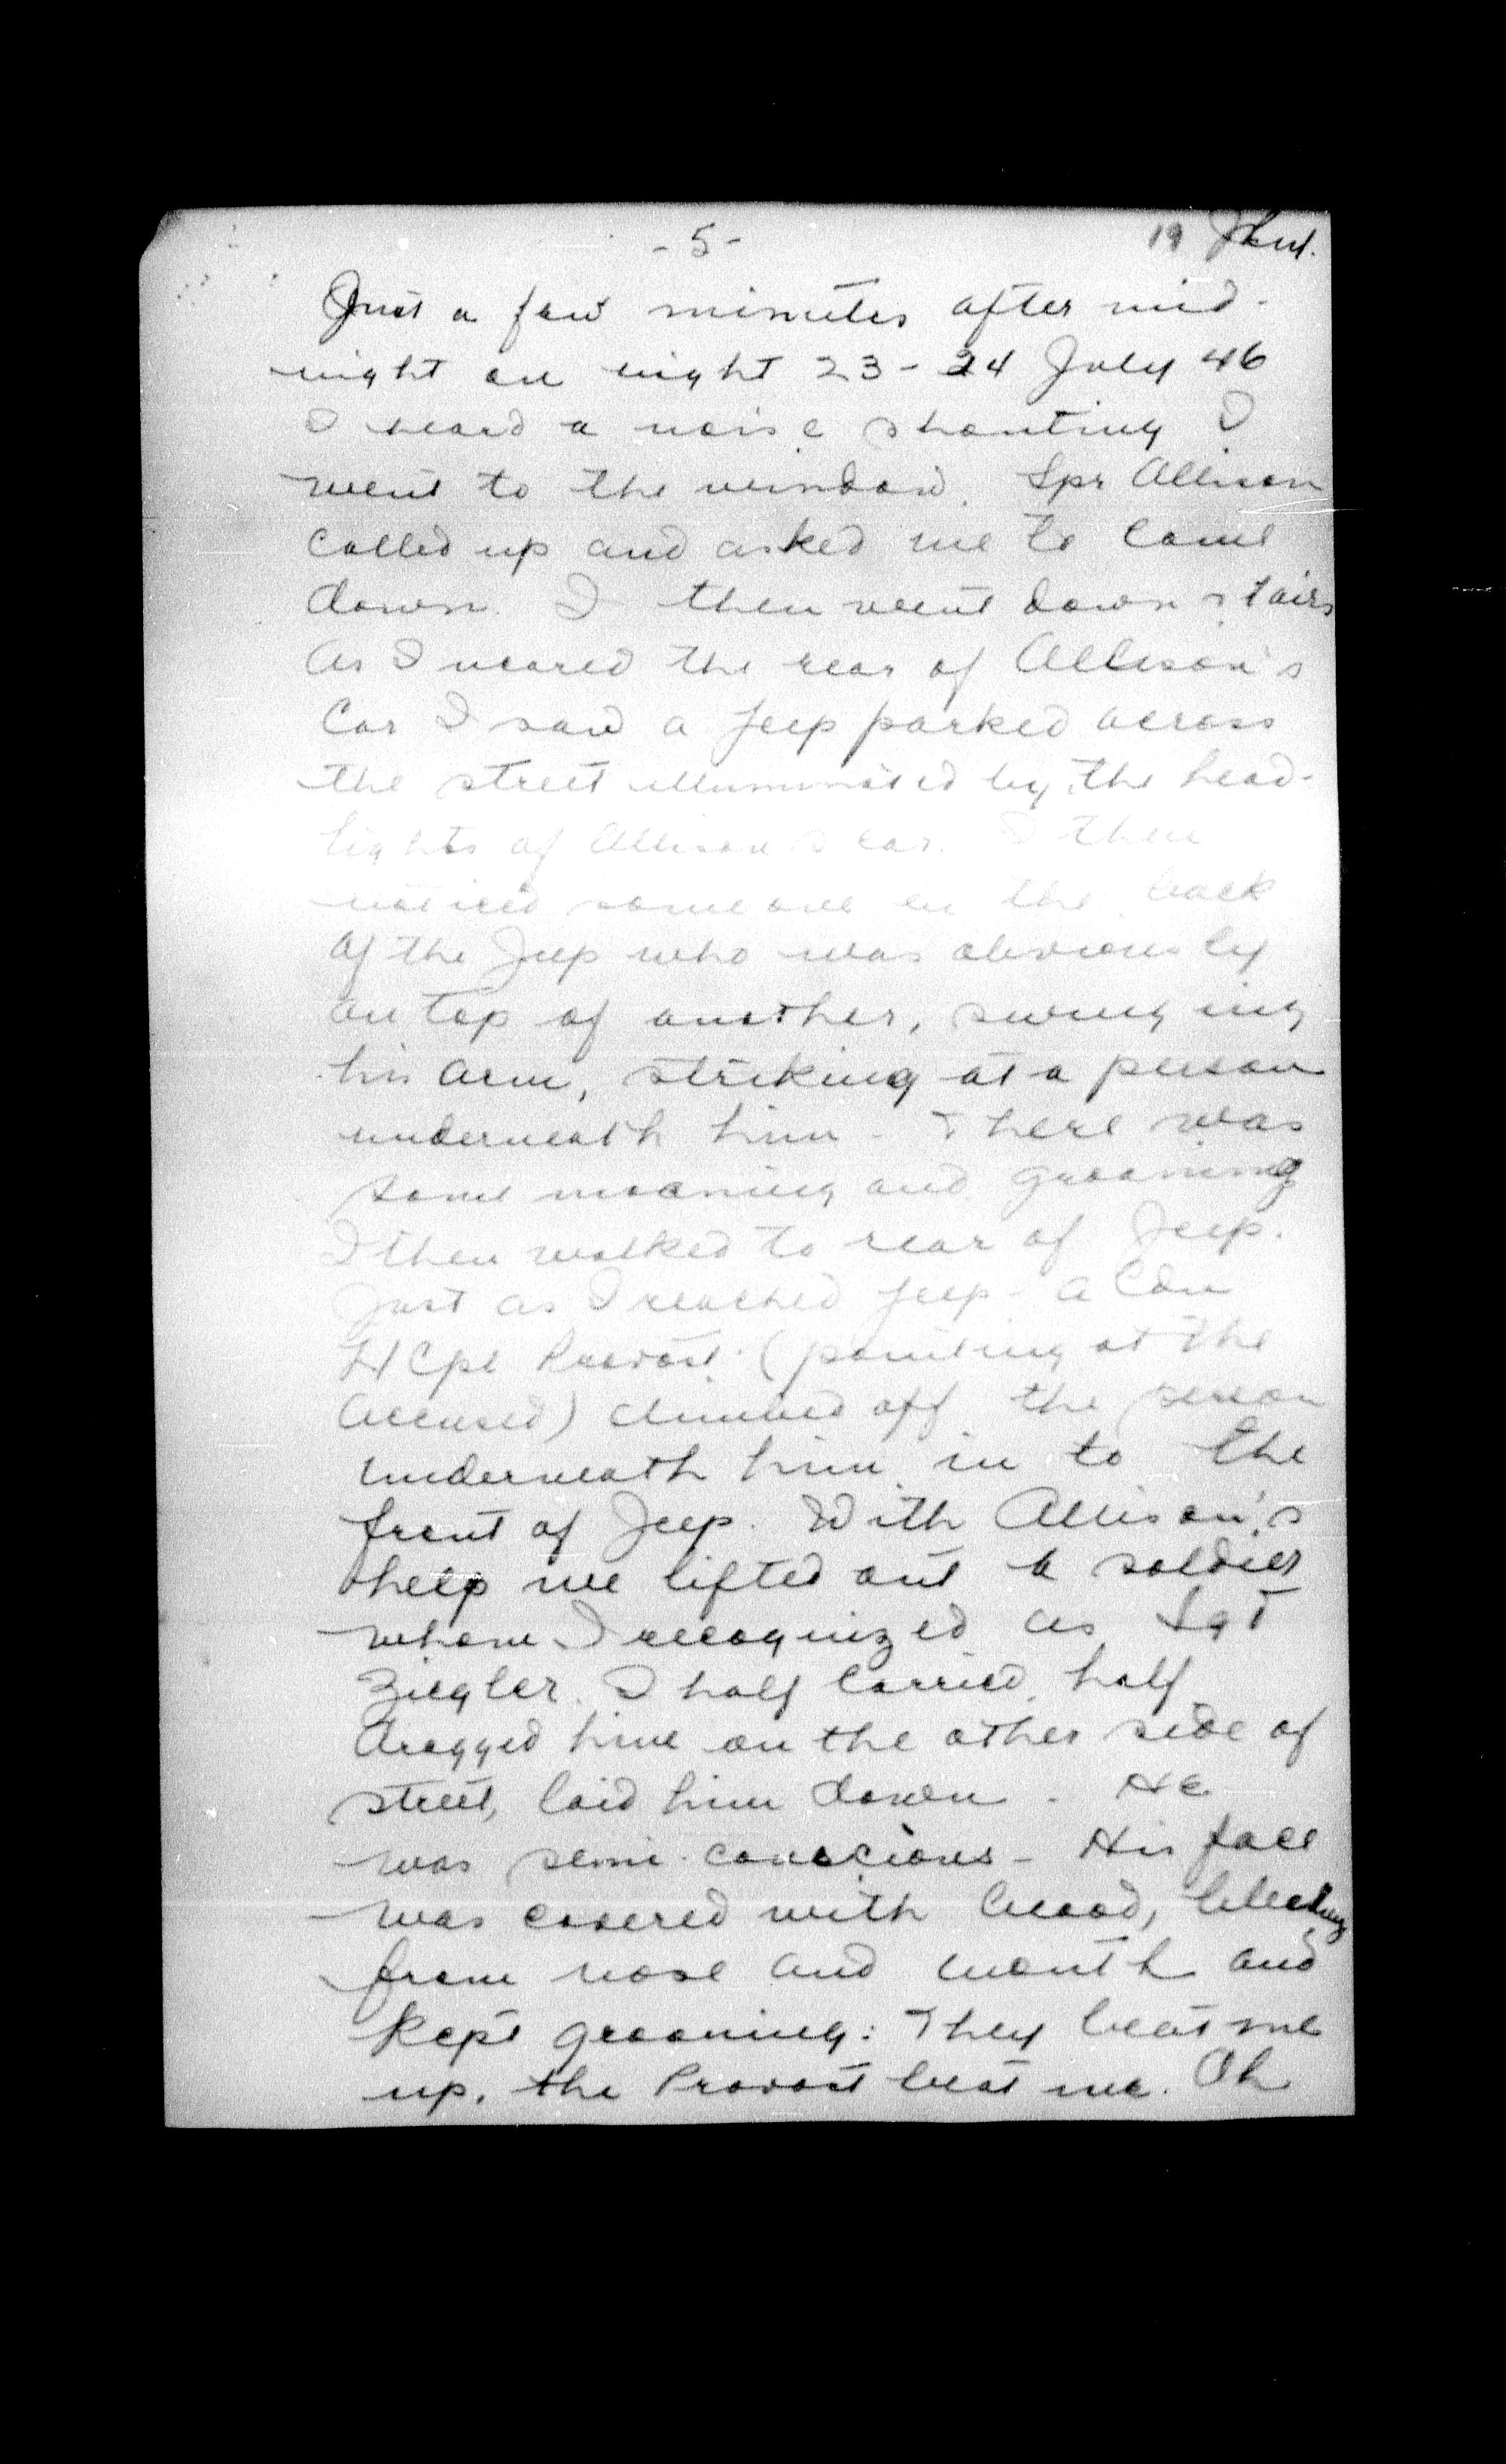 - 5 -
19
Just a few minutes after mid-
night on night 23-24 July 46
I heard a noise shouting I
went to the window. Spr Allison
called up and asked me to come
down. I then went down stairs
As I neared the rear of Allison's
Car I saw a Jeep parked across
the street illuminated by the head-
lights of Allison's car. I then
noticed someone in the back
of the Jeep who was obviously
on top of another, swinging
his arm, striking at a person
underneath him. There was
some moaning and groaning
I then walked to rear of Jeep.
Just as I reached Jeep a Cdn
Provost (pointing at the
accused) climbed off the person
underneath him in to the
front of Jeep. With Allison's
help we lifted out a soldier
whom I recognized as Sgt
Ziegler. I half carried half
dragged him on the other side of
street, laid him down. He
was semi-conscious - His face
was covered with blood, bleeding
from nose and mouth and
kept groaning: They beat me
up, the Provost beat me. Oh